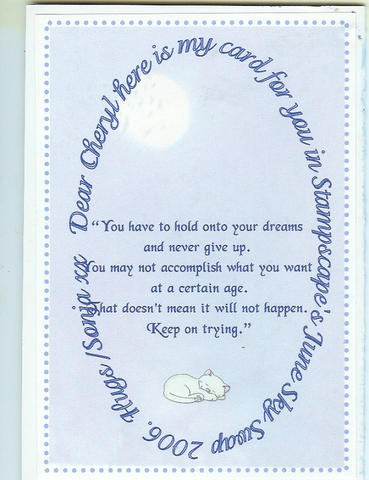 Dear Cheryl here is my card for you in Stampscape's June Sky Swap 2006. Hugs/Sonja xx
"You have to hold onto your dreams
and never give up.
You may not accomplish what you want
at a certain age.
That doesn't mean it will not happen.
Keep on trying."